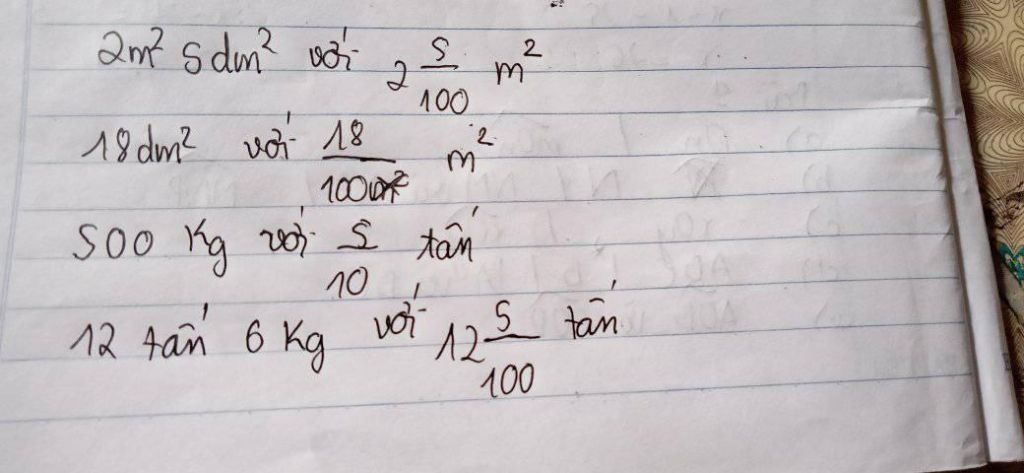 2m² 5dm² với 2 5/100 m²
18dm² với 18/100 m²
500 Kg với 5/10 tấn
12 tấn 6 Kg với 12 5/100 tấn